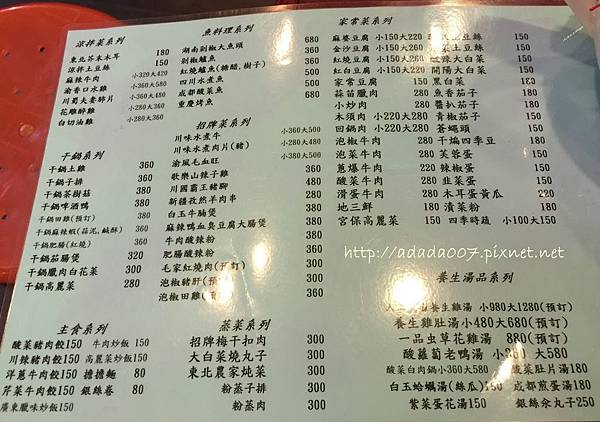 涼拌菜系列
東北芥末木耳 180
涼拌土豆絲 150
麻辣牛肉 小320大420
渝香口水雞 小360大580
川蜀夫妻肺片 小360大480
花雕醉雞 360
白切油雞 小280大360
干鍋系列
干鍋土雞 360
干鍋子排 360
干鍋茶樹菇 360
干鍋啤酒鴨 360
干鍋田雞(預訂) 360
干鍋麻辣蝦(蒜泥,鹹酥) 360
干鍋肥腸(紅燒) 360
干鍋茄腸煲 320
干鍋臘肉白花菜 300
干鍋高麗菜 280
主食系列
酸菜豬肉餃150 牛肉炒飯150
川辣豬肉餃150 高麗菜炒飯150
洋蔥牛肉餃150 擔擔麵 80
芹菜牛肉餃150 銀絲卷 80
廣東臘味炒飯150
魚料理系列
湖南剁椒大魚頭 680
剁椒鱸魚
紅燒鱸魚(糖醋,樹子)
四川水煮魚
成都酸菜魚
重慶烤魚 680
招牌菜系列
川味水煮牛 小360大500
川味水煮肉片(豬) 小280大360
渝風毛血旺 小380大500
歌樂山辣子雞 360
川國霸王豬腳 360
新疆孜然羊肉串
白玉牛腩煲
麻辣鴨血臭豆腐大腸煲
牛肉酸辣粉
肥腸酸辣粉
毛家紅燒肉(預訂)
泡椒豬肝(預訂)
泡椒田雞(預訂)
蒸菜系列
招牌梅干扣肉 300
大白菜燒丸子 300
東北農家炖菜 300
粉蒸子排 300
粉蒸肉 300
家常菜系列
麻婆豆腐 小150大220 土豆絲 150
金沙豆腐 小150大260 土豆絲 150
紅燒豆腐 小150大260 大白菜 150
紅白豆腐 小150大220 開陽大白菜 150
家常豆腐 150 黑白菜 180
蒜苗臘肉 280 魚香茄子 150
小炒肉 280 醬扒茄子 150
木須肉 小220大280 青椒茄子 150
回鍋肉 小220大280 蒼蠅頭 150
泡椒牛肉 280 干煸四季豆 150
泡菜牛肉 280 芙蓉蛋 150
蔥爆牛肉 280 辣椒蛋 150
酸菜牛肉 280 韭菜蛋 150
滑蛋牛肉 280 木耳蛋黃瓜 220
地三鮮 180 漬菜粉 150
宮保高麗菜 150 四季時蔬 小100大150
http://adada007.pixnet.net
養生湯品系列
養生雞湯 小980大1280(預訂)
養生雞肚湯小480大680(預訂)
一品虫草花雞湯 880(預訂)
酸蘿蔔老鴨湯 小360 大580
酸菜白肉鍋小360大580 酸菜肚片湯180
白玉蛤蠣湯(絲瓜)150 成都煎蛋湯180
紫菜蛋花湯150 銀絲汆丸子250